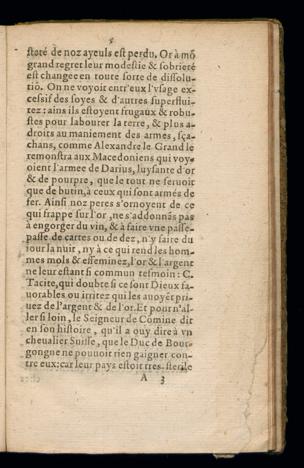 5
steté de noz ayeuls est perdu. Or à mõ
grand regret leur modestie & sobrieté
est changee en toute sorte de dissolu-
tiõ. On ne voyoit entr'eux l'vsage ex-
cessif des soyes & d'autres superfluitez:
ains ils estoyent frugaux & robu-
stes pour labourer la terre, & plus a-
droits au maniement des armes, sça-
chans, comme Alexandre le Grand le
remonstra aux Macedoniens qui voy-
oient l'armee de Darius, luysante d'or
& de pourpre, que le tout ne seruoit
que de butin, à ceux qui sont armés de
fer. Ainsi noz peres s'ornoyent de ce
qui frappe sur l'or, ne s'addonnãs pas
à engorger du vin, & à faire vne passe-
passe de cartes ou de dez, n'y faire du
iour la nuit, ny à ce qui rend les hom-
mes mols & effeminez, l'or & l'argent
ne leur estant si commun tesmoin: C.
Tacite, qui doubte si ce sont Dieux fa-
uorables ou irritez qui les auoyët pri-
uez de l'argent & de l'or. Et pour n'al-
ler si loin, le Seigneur de Comine dit
en son histoire, qu'il a ouy dire à vn
cheualier Suisse, que le Duc de Bour-
gongne ne pouuoit rien gaigner con-
tre eux: car leur pays estoit tres-sterile
A 3